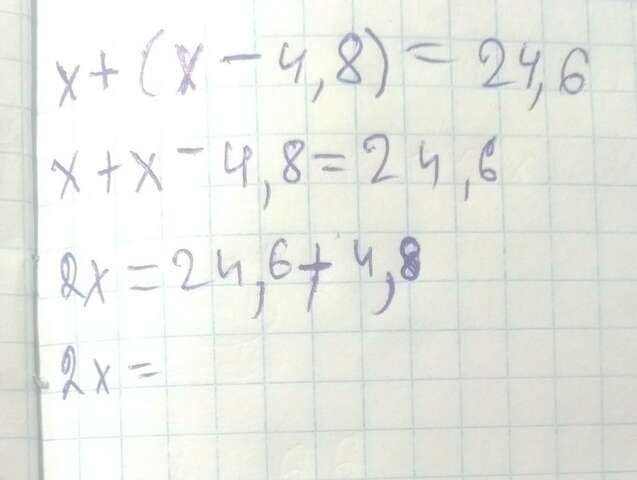 x+(x-4,8)=24,6
x+x-4,8=24,6
2x=24,6+4,8
2x=